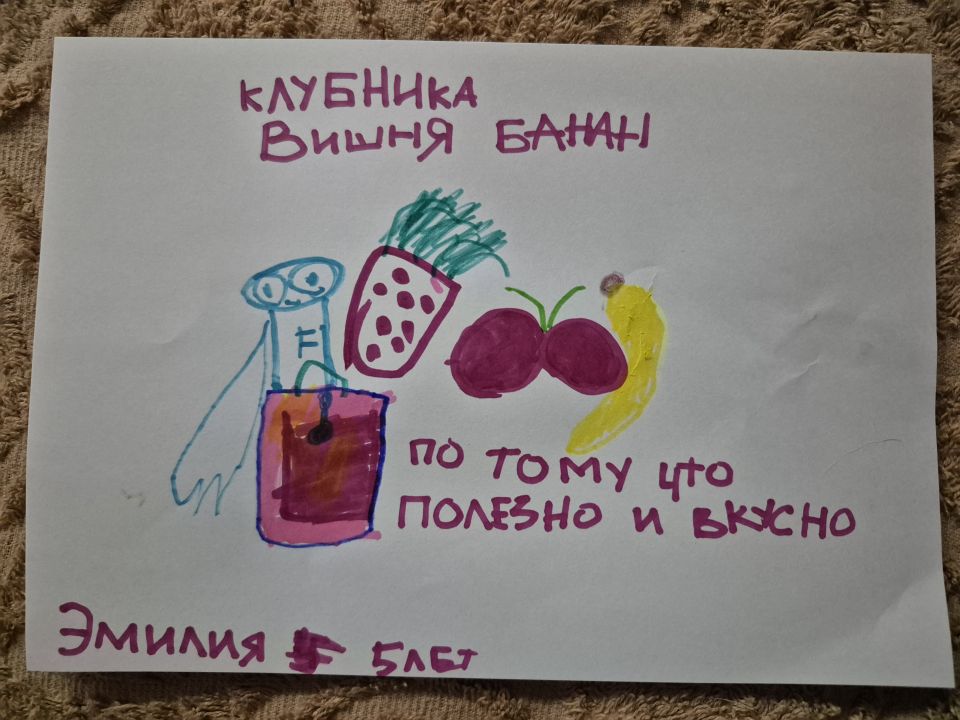 КЛУБНИКА
ВИШНЯ БАНАН
F
ПО ТОМУ ЧТО
ПОЛЕЗНО И ВКУСНО
ЭМИЛИЯ 5 ЛЕТ